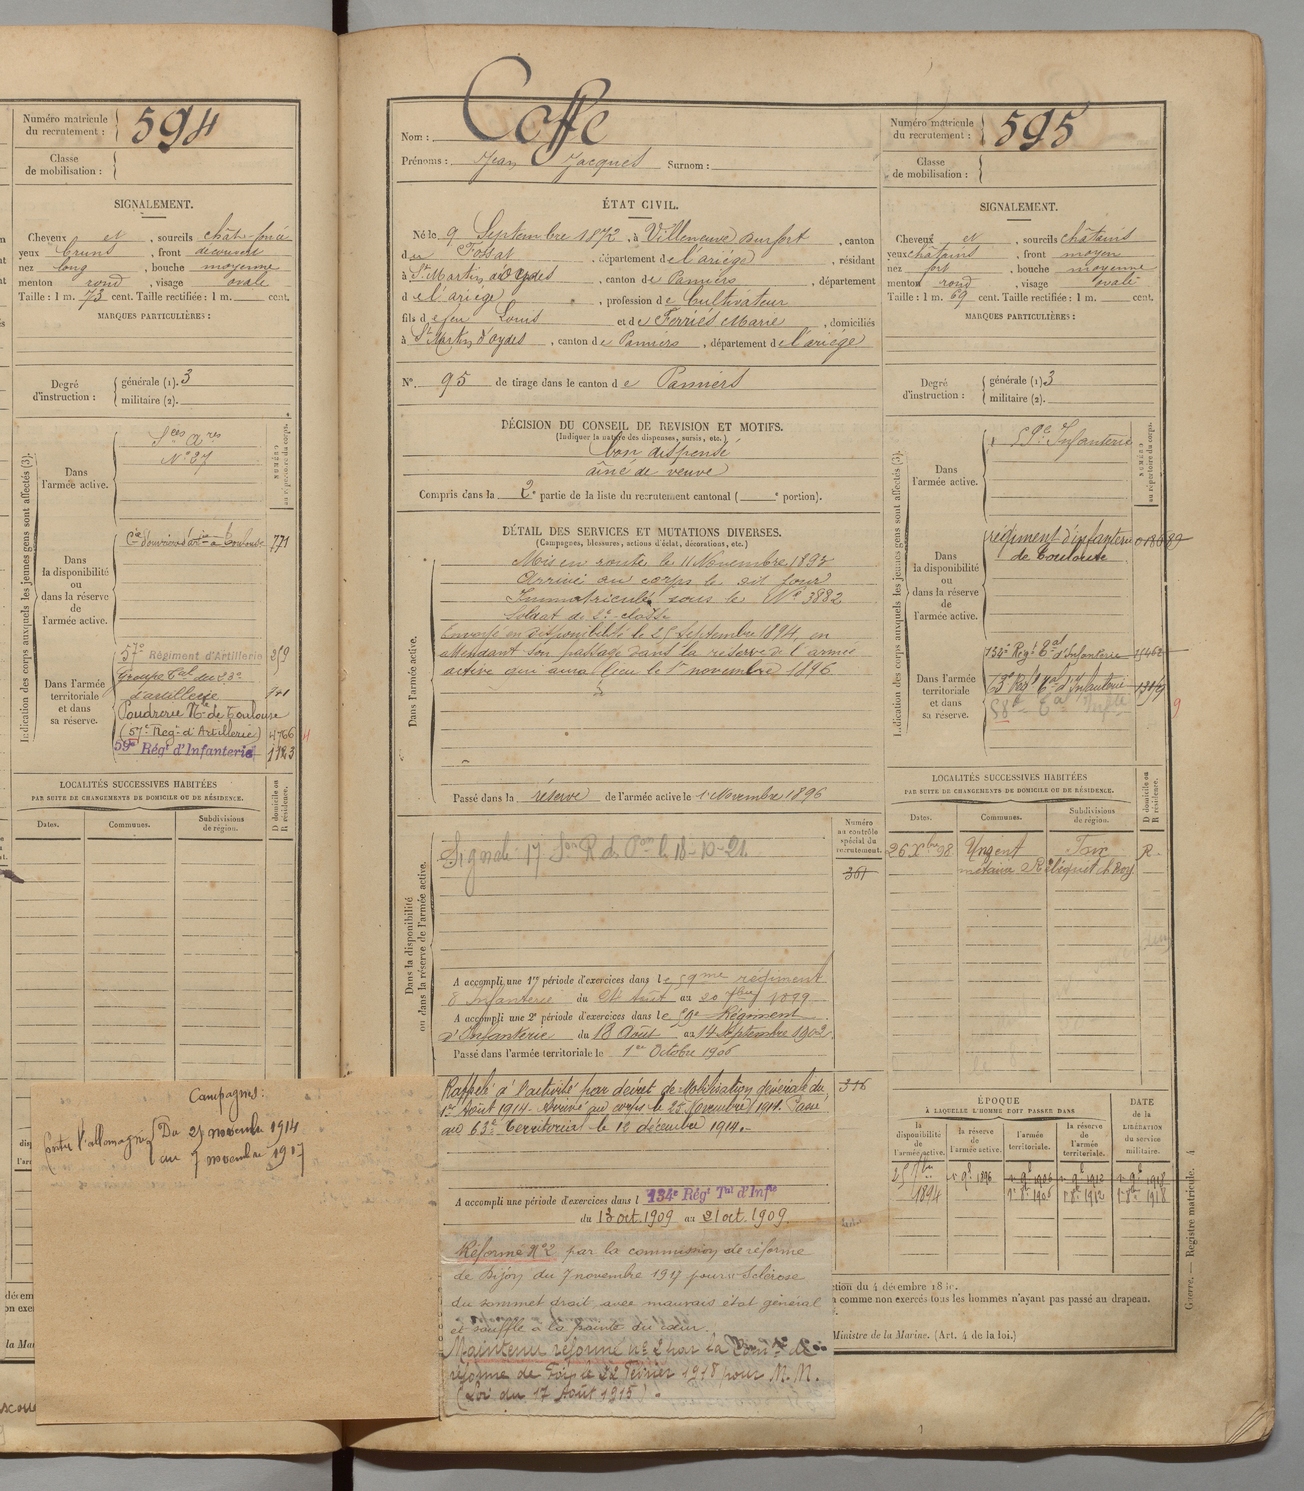 Numéro matricule
du recrutement : 594
Classe
de mobilisation :
SIGNALEMENT.
Cheveux et , sourcils chât-foncé
yeux bruns , front découvert
nez long , bouche moyenne
menton rond , visage ovale
Taille : 1 m. 73 cent. Taille rectifiée : 1 m. cent.
MARQUES PARTICULIÈRES :
Degré
d'instruction :
générale (1). 3
militaire (2).
Indication des corps auxquels les jeunes gens sont affectés (3).
Dans
l'armée active.
Son Ares
N° 27
Dans
la disponibilité
ou
dans la réserve
de l'armée
active.
Cie d'ouvriers d'artie à Toulouse 771
Dans l'armée
territoriale
et dans
sa réserve.
57e Régiment d'Artillerie 259
Groupe tal du 23e
d'artillerie 101
Poudrerie Nle de Toulouse
(57e Régt d'Artillerie) 4766
59e Régt d'Infanterie 1123
LOCALITÉS SUCCESSIVES HABITÉES
PAR SUITE DE CHANGEMENTS DE DOMICILE OU DE RÉSIDENCE.
D domicile ou
R résidence.
Dates.
Communes.
Subdivisions
de région.
Campagnes :
Contre l'allemagne
Du 25 novembre 1914
au 7 novembre 1917
Nom : Caffe
Prénoms : Jean Jacques Surnom :
ÉTAT CIVIL.
Né le 9 Septembre 1872 , à Villeneuve Durfort , canton
du Fossat , département de l'ariége , résidant
à St Martin d'oydes , canton de Pamiers , département
de l'ariége , profession de Cultivateur
fils de feu Louis et de Ferriés Marie , domiciliés
à St Martin d'Oydes , canton de Pamiers , département de l'ariége
N°. 95 de tirage dans le canton de Pamiers
DÉCISION DU CONSEIL DE REVISION ET MOTIFS.
(Indiquer la nature des dispenses, sursis, etc.)
bon dispensé
aîné de veuve
Compris dans la 2e partie de la liste du recrutement cantonal ( e portion).
DÉTAIL DES SERVICES ET MUTATIONS DIVERSES.
(Campagnes, blessures, actions d'éclat, décorations, etc.)
Dans l'armée active.
Mis en route le 11 Novembre 1893
Arrivé au corps le dit jour
Immatriculé sous le N° 3882
Soldat de 2e classe
Envoyé en disponibilité le 25 Septembre 1894, en
attendant son passage dans la réserve de l'armée
active qui aura lieu le 1er novembre 1896
Passé dans la réserve de l'armée active le 1er Novembre 1896
Dans la disponibilité
ou dans la réserve de l'armée active.
Numéro
au contrôle
spécial du
recrutement.
361
A accompli une 1re période d'exercices dans le 59me régiment
d'Infanterie du 24 Août au 20 7bre 1899
A accompli une 2e période d'exercices dans le 59e Régiment
d'Infanterie du 18 Août au 14 Septembre 1902
Passé dans l'armée territoriale le 1er Octobre 1906
Rappelé à l'activité par décret de Mobilisation générale du
1er Août 1914. Arrivé au corps le 25 novembre 1914. Passé
au 63e Territorial le 12 décembre 1914.
316
A accompli une période d'exercices dans l 134e Régt Tal d'Infie
du 13 oct. 1909 au 21 oct. 1909.
Réformé N°2 par la commission de réforme
de Dijon du 7 novembre 1917 pour : Sclérose
du sommet droit avec mauvais état général
et souffle à la pointe du cœur.
Maintenu réformé n° 2 par la Comon de
réforme de Foix le 22 Février 1918 pour M. M.
(Loi du 17 Août 1915).
Numéro matricule
du recrutement : 595
Classe
de mobilisation :
SIGNALEMENT.
Cheveux et , sourcils châtains
yeux châtains , front moyen
nez fort , bouche moyenne
menton rond , visage ovale
Taille : 1 m. 69 cent. Taille rectifiée : 1 m. cent.
MARQUES PARTICULIÈRES :
Degré
d'instruction :
générale (1). 3
militaire (2).
Indication des corps auxquels les jeunes gens sont affectés (3).
Dans
l'armée active.
59e Infanterie
Dans
la disponibilité
ou
dans la réserve
de l'armée
active.
régiment d'infanterie
de Toulouse
Dans l'armée
territoriale
et dans
sa réserve.
134e Régt tal d'Infanterie
63e Régt tal d'Infanterie
LOCALITÉS SUCCESSIVES HABITÉES
PAR SUITE DE CHANGEMENTS DE DOMICILE OU DE RÉSIDENCE.
D domicile ou
R résidence.
Dates.
Communes.
Subdivisions
de région.
26 Xbre 98 Unzent Foix R.
ÉPOQUE
À LAQUELLE L'HOMME DOIT PASSER DANS
la
disponibilité
de
l'armée active.
la réserve
de
l'armée active.
l'armée
territoriale.
la réserve
de
l'armée
territoriale.
DATE
de la
LIBÉRATION
du service
militaire.
25 7bre
1894
1er 9bre 1896
1er 8bre 1906
1er 8bre 1912
1er 8bre 1918
comme non exercés tous les hommes n'ayant pas passé au drapeau.
Ministre de la Marine. (Art. 4 de la loi.)
Guerre. — Registre matricule. 4